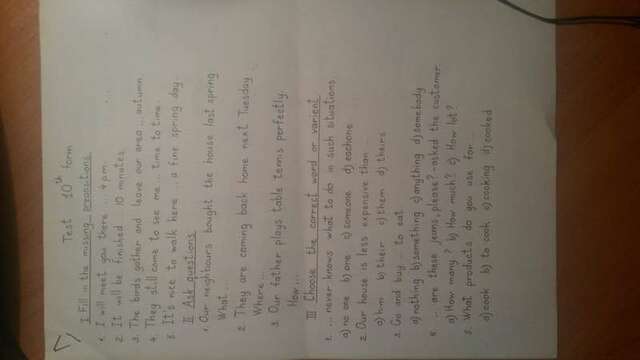 Test 10th form
I Fill in the missing prepositions
1. I will meet you there ... 4 p.m. ...
2. It will be finished ... 10 minutes.
3. The birds gather and leave our area ... autumn
4. They still come to see me ... time to time.
5. It's nice to walk here ... a fine spring day.
II Ask questions
1. Our neighbours bought the house last spring
What...
2. They are coming back home next Tuesday.
Where...
3. Our father plays table tennis perfectly.
How...
III Choose the correct word or varient
1. ... never knows what to do in such situations
a) no one b) one c) someone d) eachone
2. Our house is less expensive than
a) him b) their c) them d) theirs
3. Go and buy ... to eat
a) nothing b) something c) anything d) somebody
4. .. are these jeans, please? - asked the customer
a) How many? b) How much? c) How lot?
5. What products do you use for ..
a) cook b) to cook c) cooking d) cooked